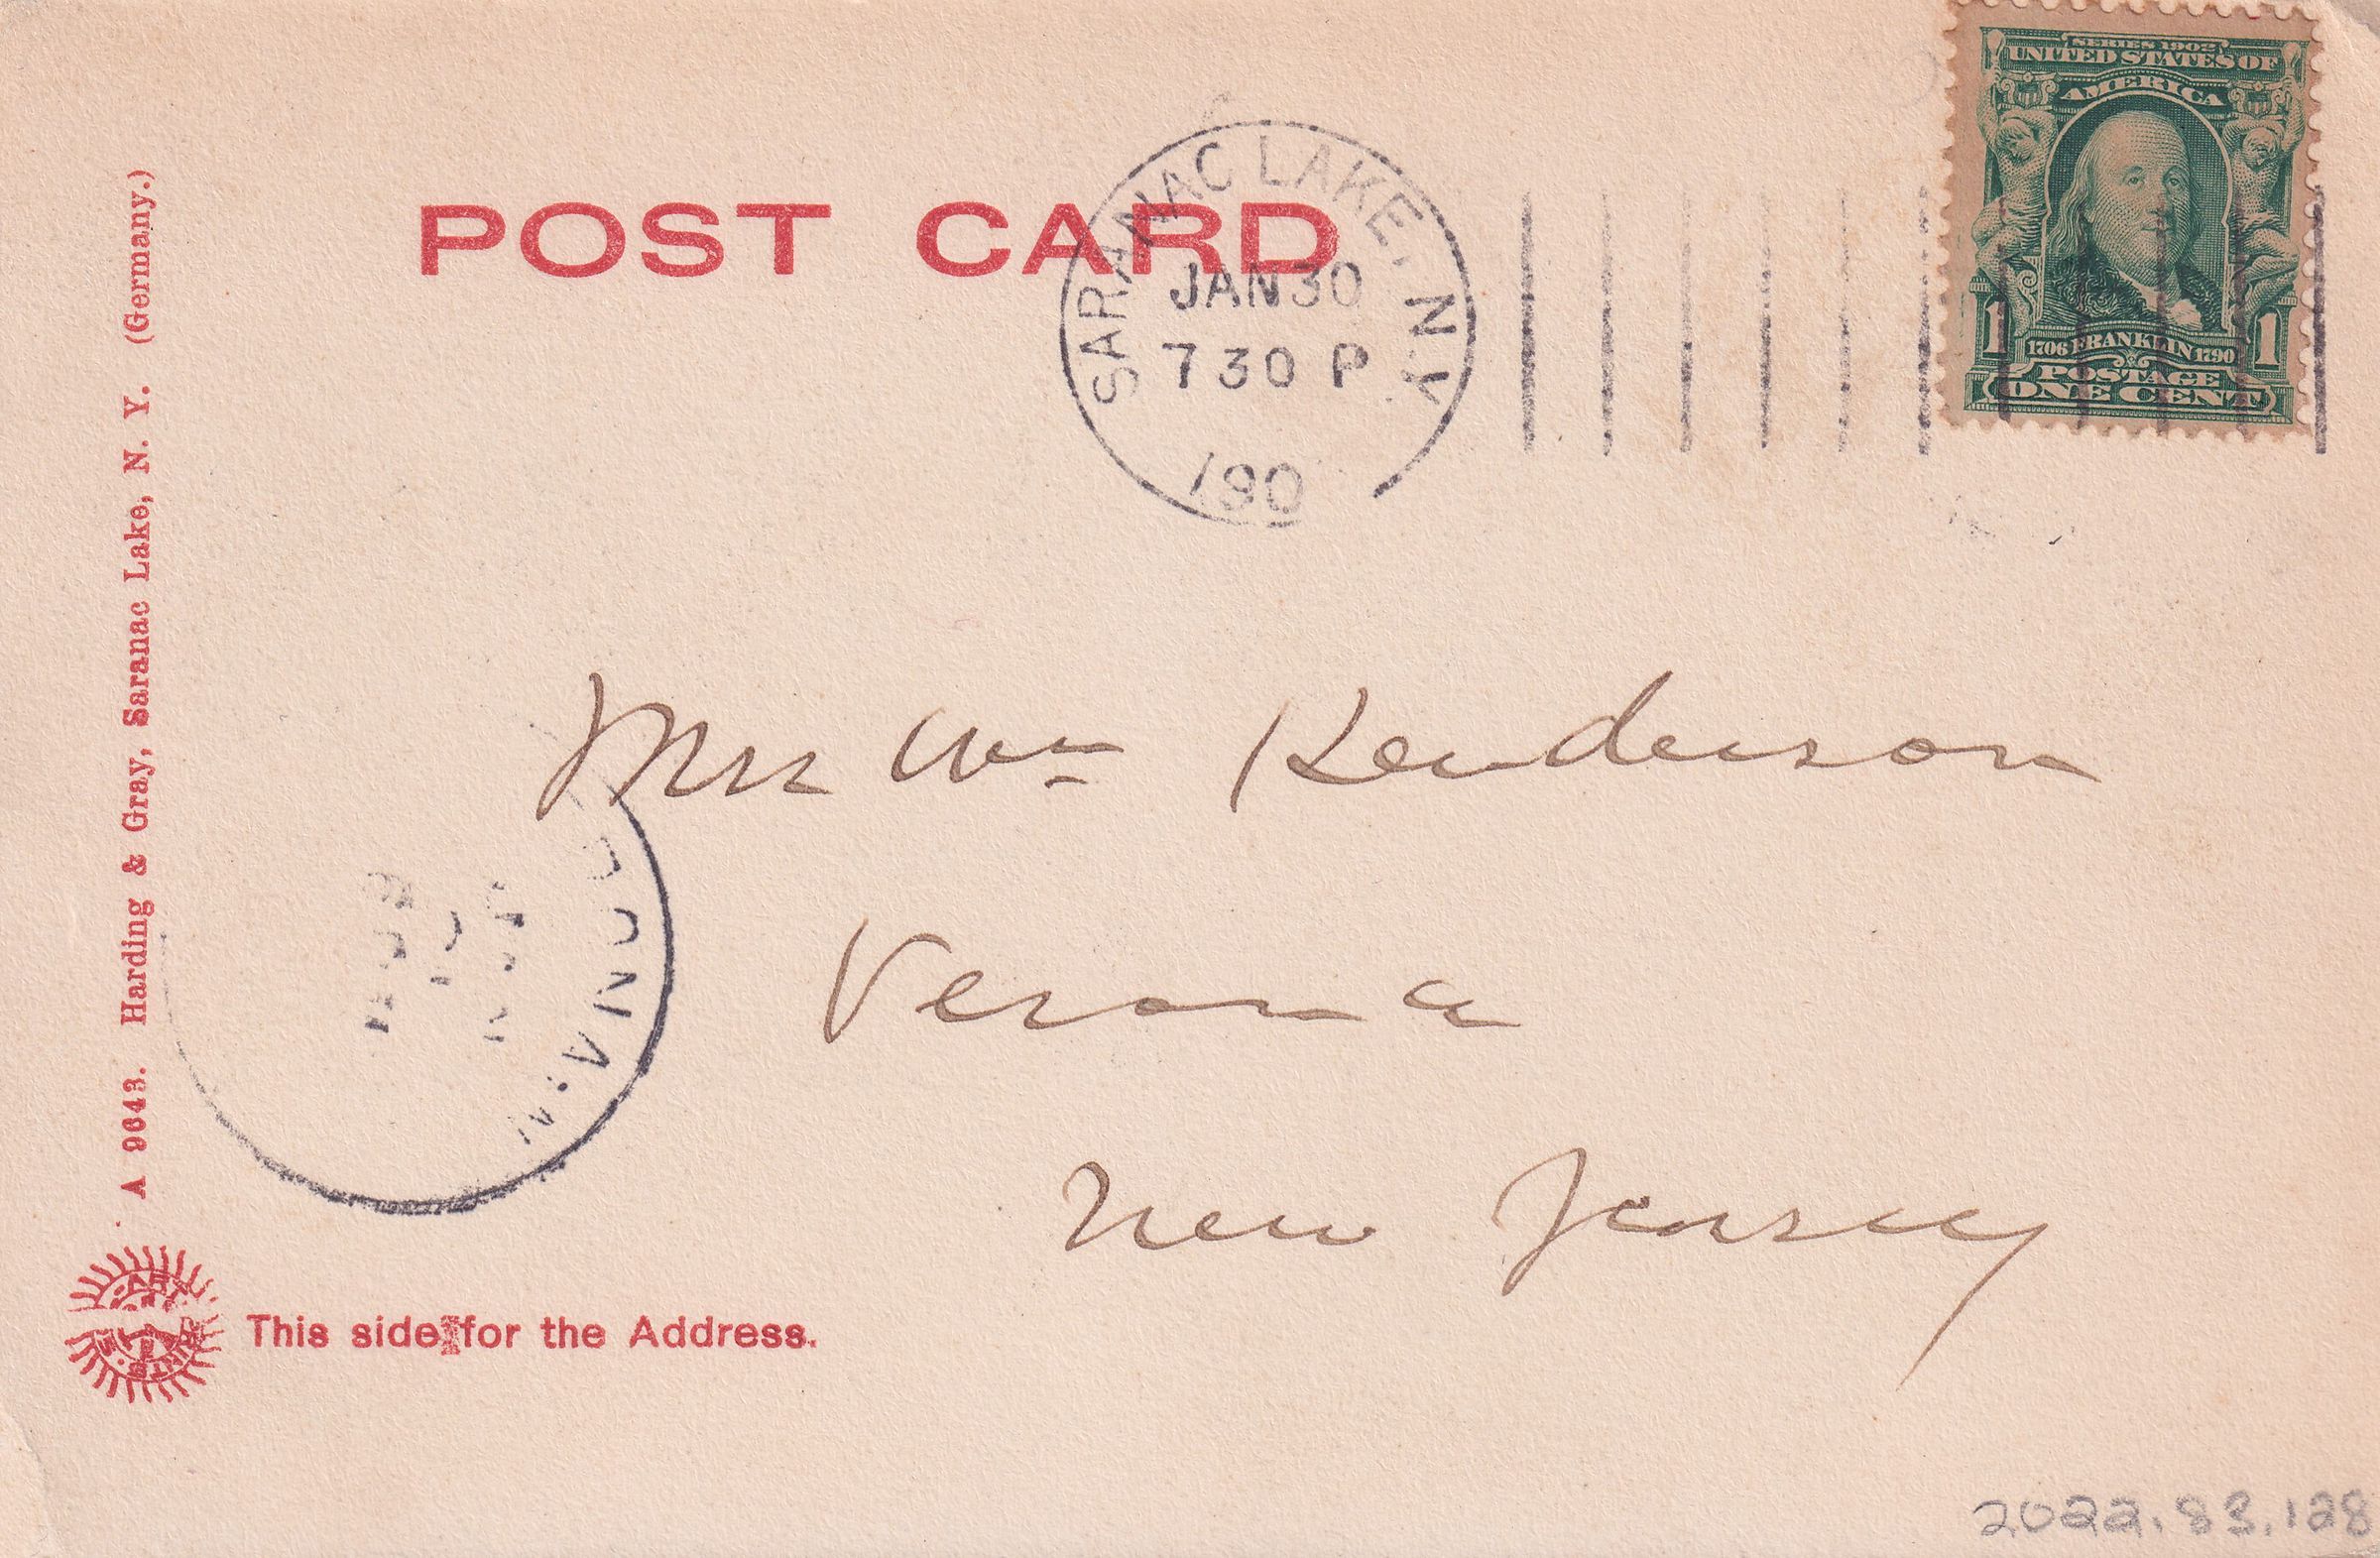 SERIES 1902
UNITED STATES OF
AMERICA
1 1
1706 FRANKLIN 1790
POSTAGE
ONE CENT
POST CARD
SARANAC LAKE, N.Y.
JAN 30
7 30 P
190
A 9643. Harding & Gray, Saranac Lake, N. Y. (Germany.)
Mrs Wm Henderson
Verona
New Jersey
This side for the Address.
2022.83.128